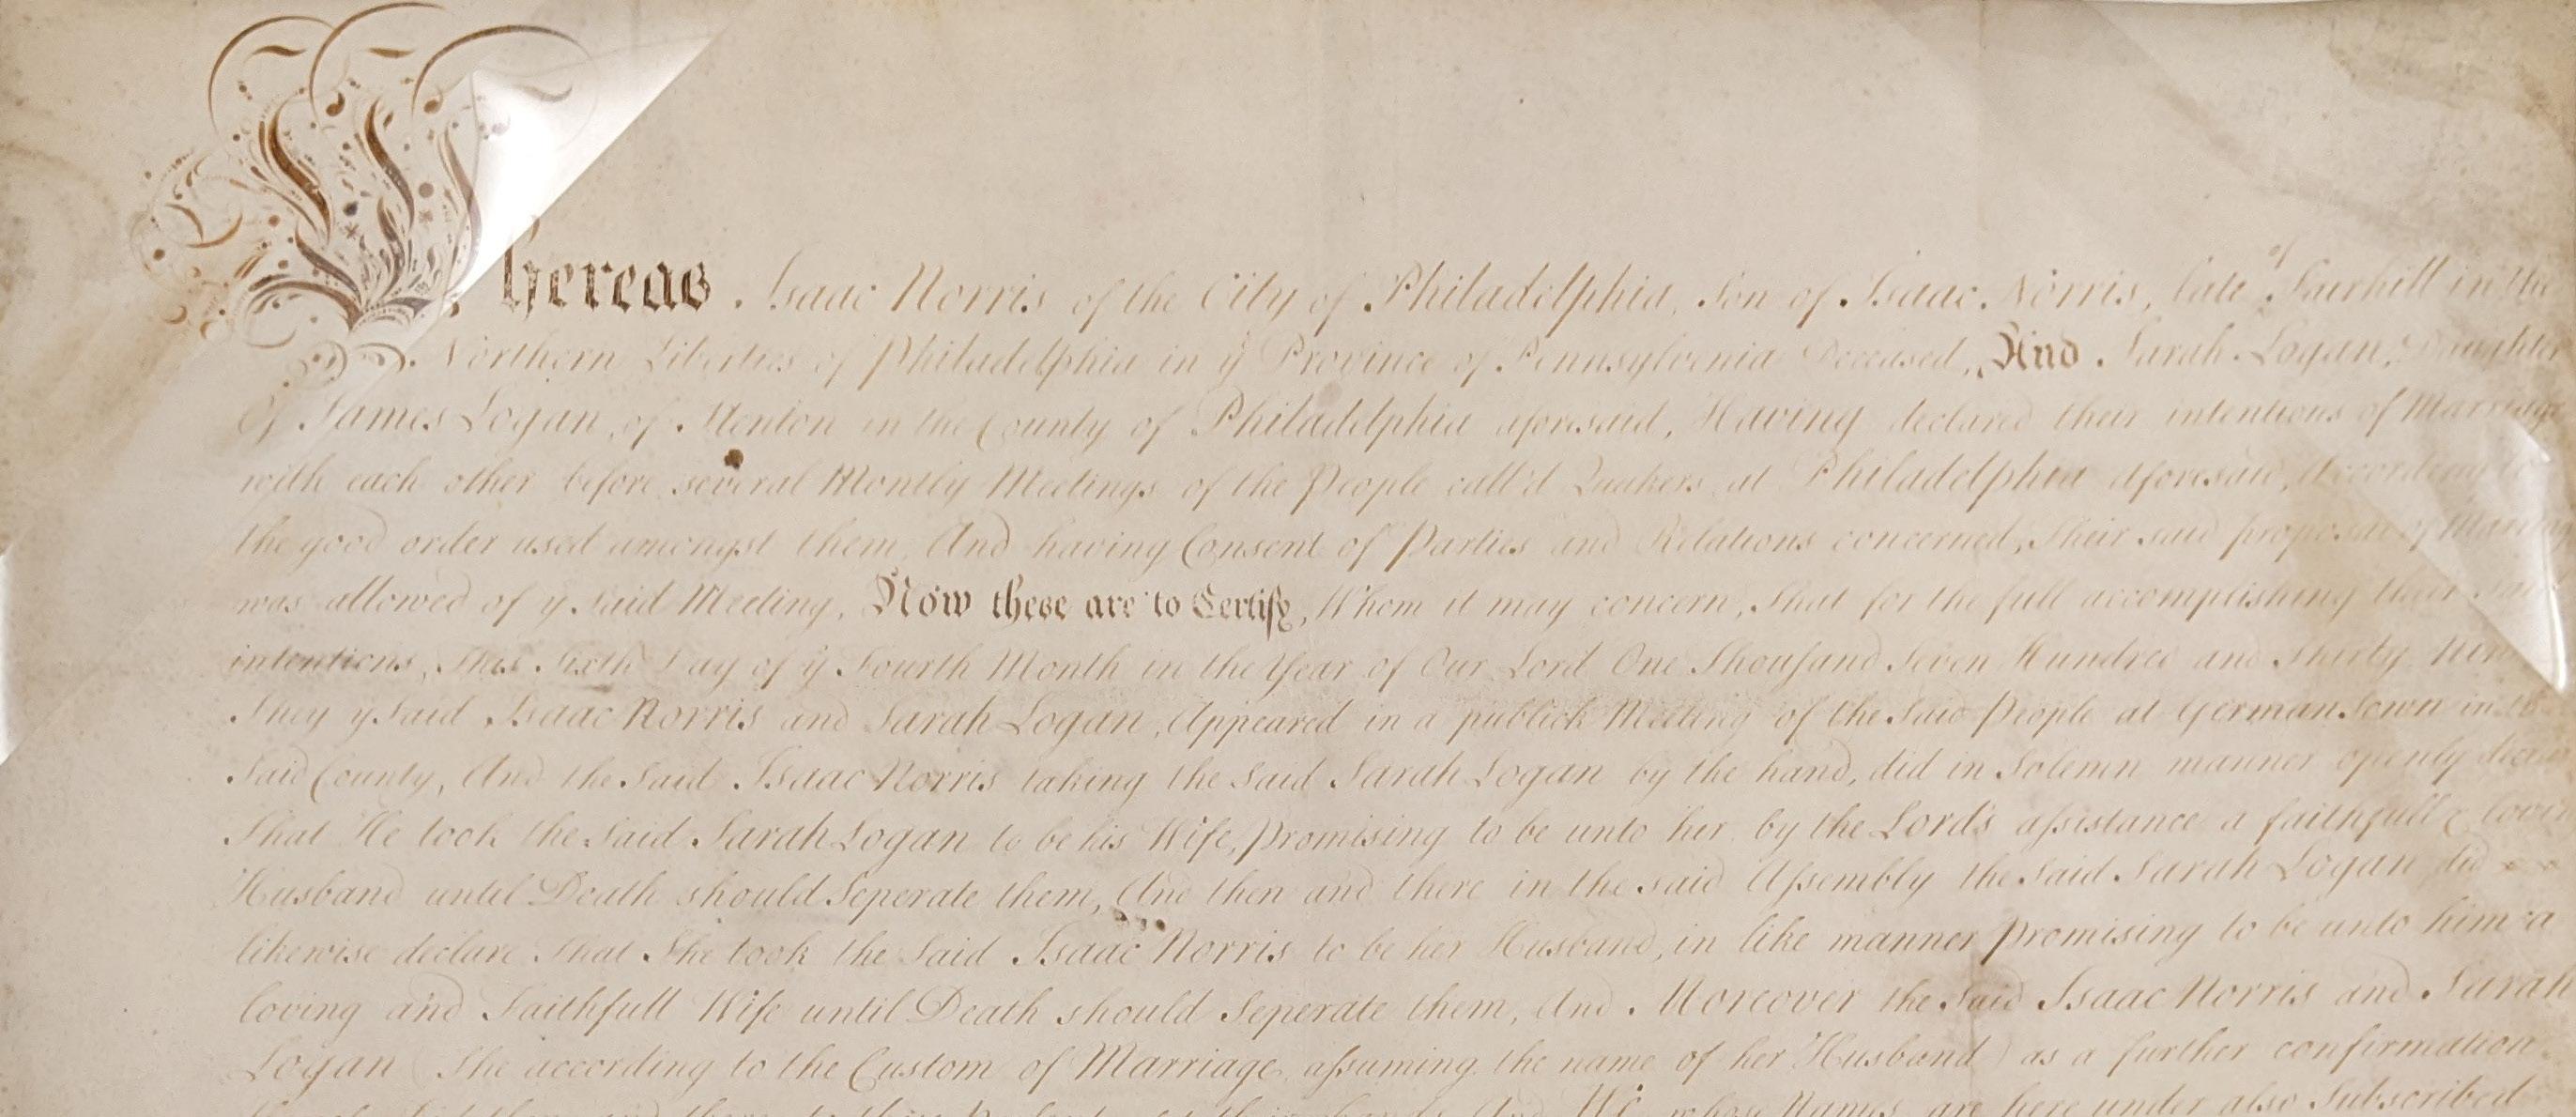 Whereas Isaac Norris of the City of Philadelphia, Son of Isaac Norris, late of Fairhill in the
Northern Liberties of Philadelphia in ye Province of Pennsylvania Deceased, And Sarah Logan, Daughter
Of James Logan, of Stenton in the County of Philadelphia aforesaid, Having declared their intentions of Marriage
with each other before several Montly Meetings of the People call'd Quakers, at Philadelphia aforesaid, According to
the good order used amongst them, And having Consent of Parties and Relations concerned, Their said proposal of Marriage
was allowed of ye said Meeting, Now these are to Certify, Whom it may concern, That for the full accomplishing their said
intentions, This Sixth Day of ye Fourth Month in the Year of Our Lord One Thousand Seven Hundred and Thirty Nine
They ye Said Isaac Norris and Sarah Logan, Appeared in a publick Meeting of the Said People at GermanTown in the
Said County, And the Said Isaac Norris taking the Said Sarah Logan by the hand, did in Solemn manner openly declare
That He took the Said Sarah Logan to be his Wife, promising to be unto her by the Lord's assistance a faithfull & lovin
Husband until Death should Seperate them, And then and there in the said Assembly the Said Sarah Logan did
likewise declare that She took the Said Isaac Norris to be her Husband, in like manner promising to be unto him a
loving and Faithfull Wife until Death should Seperate them, And Moreover the Said Isaac Norris and Sarah
Logan (She according to the Custom of Marriage assuming the name of her Husband) as a further confirmation
hands And We whose Names are here under also Subscribed